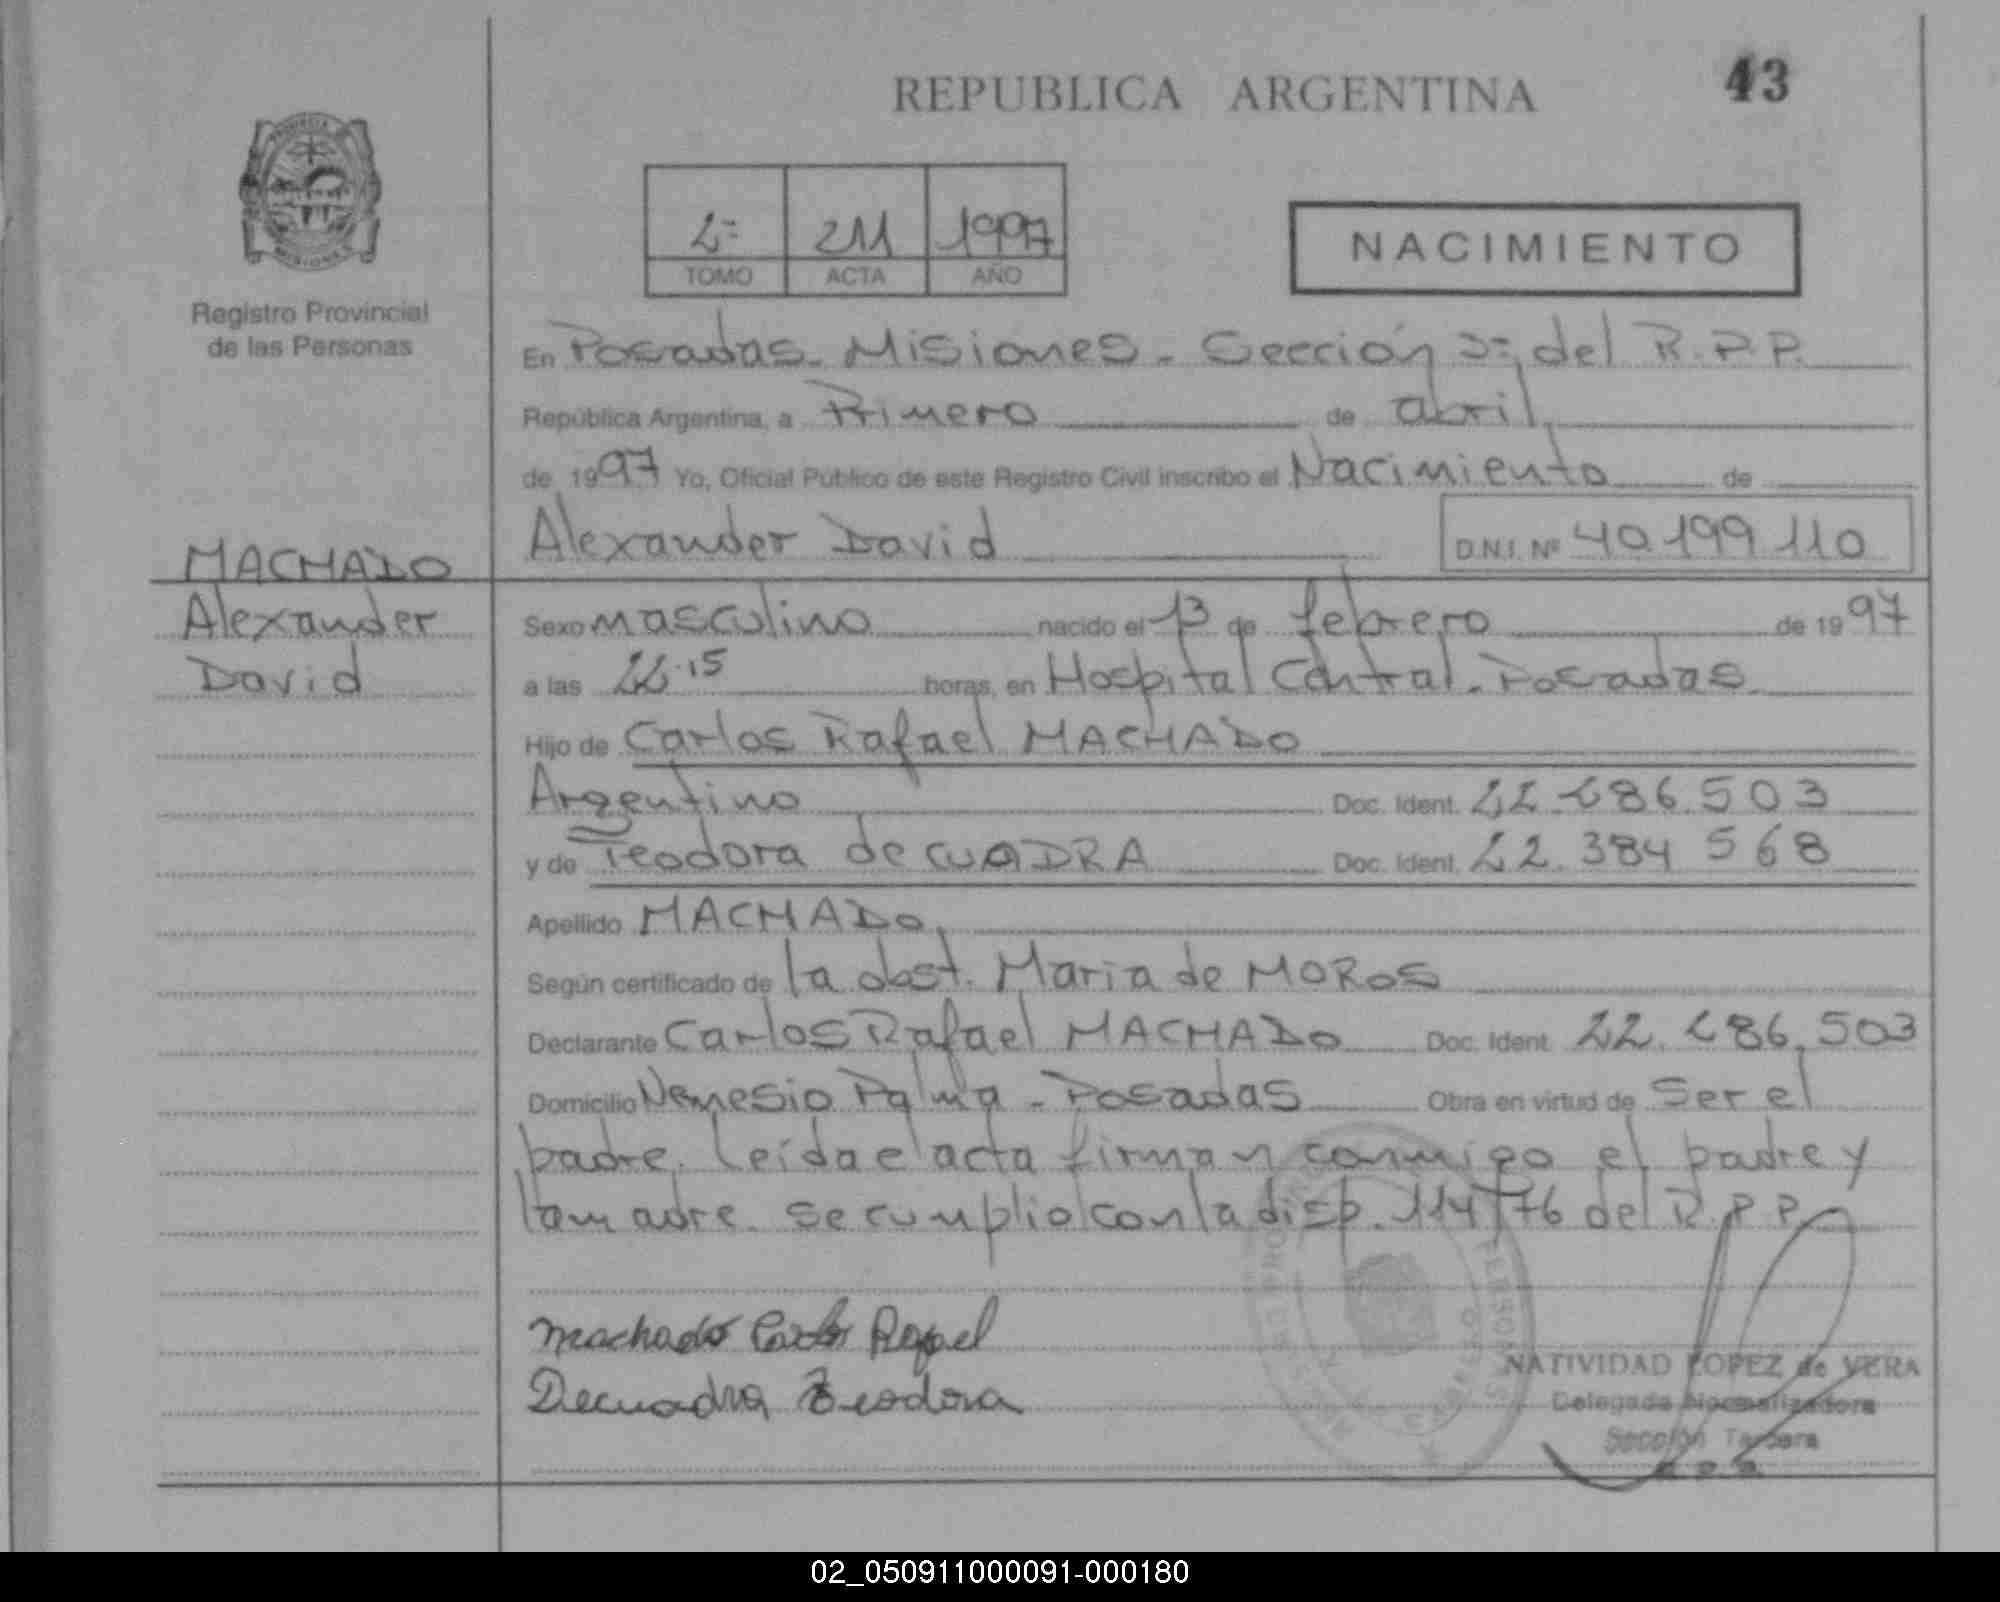 REPUBLICA ARGENTINA
43
2º 211 1997
TOMO ACTA AÑO
NACIMIENTO
Registro Provincial
de las Personas
En Posadas - Misiones - Sección 3º del R.P.P.
República Argentina, a Primero de abril
de 1997 Yo, Oficial Público de este Registro Civil inscribo el Nacimiento de
Alexander David
D.N.I. Nº 40.199.110
MACHADO
Alexander
David
Sexo masculino nacido el 13 de febrero de 1997
a las 22.15 horas, en Hospital Central - Posadas
Hijo de Carlos Rafael MACHADO
Argentino Doc. Ident. 22.286.503
y de Teodora de CUADRA Doc. Ident. 22.384.568
Apellido MACHADO
Según certificado de la obst. Maria de MOROS
Declarante Carlos Rafael MACHADO Doc. Ident. 22.286.503
Domicilio Nemesio Palma - Posadas Obra en virtud de ser el
padre. Leída el acta firman conmigo el padre y
la madre. se cumplio con la disp. 114/76 del R.P.P.
Machado Carlos Rafael
Decuadra Teodora
NATIVIDAD LOPEZ de VERA
Delegada Normalizadora
Sección Tercera
02_050911000091-000180